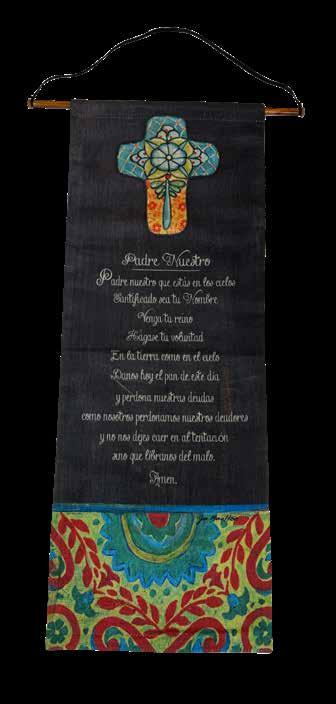 Padre Nuestro
Padre nuestro que estás en los cielos
Santificado sea tu Nombre
Venga tu reino
Hágase tu voluntad
En la tierra como en el cielo
Danos hoy el pan de este día
y perdona nuestras deudas
como nosotros perdonamos nuestros deudores
y no nos dejes caer en al tentación
sino que libranos del malo.
Amen.